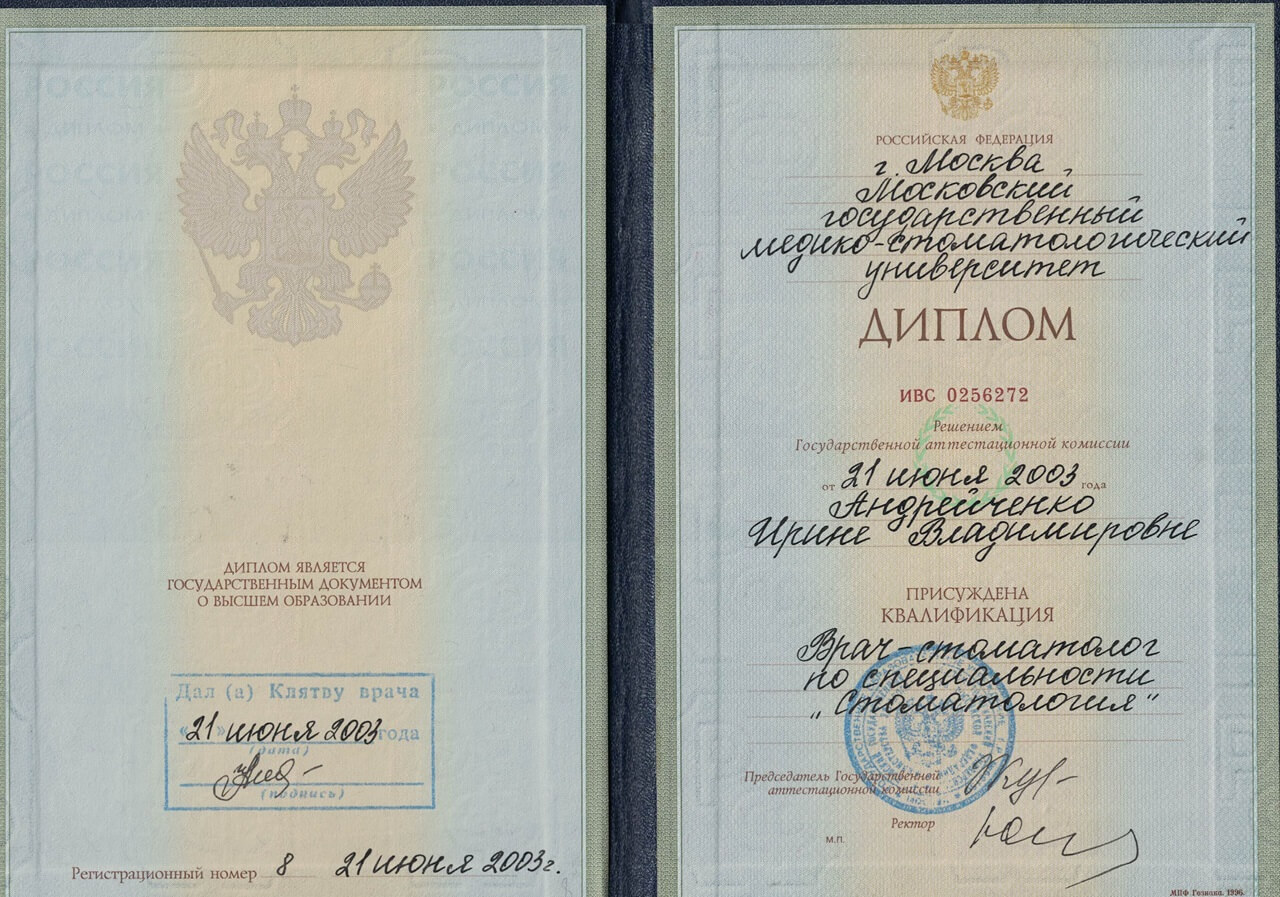 ДИПЛОМ ЯВЛЯЕТСЯ
ГОСУДАРСТВЕННЫМ ДОКУМЕНТОМ
О ВЫСШЕМ ОБРАЗОВАНИИ
Дал (а) Клятву врача
«21» июня 2003 года
(дата)
(подпись)
Регистрационный номер 8 21 июня 2003г.
РОССИЙСКАЯ ФЕДЕРАЦИЯ
г. Москва
Московский
государственный
медико-стоматологический
университет
ДИПЛОМ
ИВС 0256272
Решением
Государственной аттестационной комиссии
от 21 июня 2003 года
Андрейченко
Ирине Владимировне
ПРИСУЖДЕНА
КВАЛИФИКАЦИЯ
Врач-стоматолог
по специальности
„Стоматология"
Председатель Государственной
аттестационной комиссии
Ректор
М.П.
МПФ Гознака. 1996.